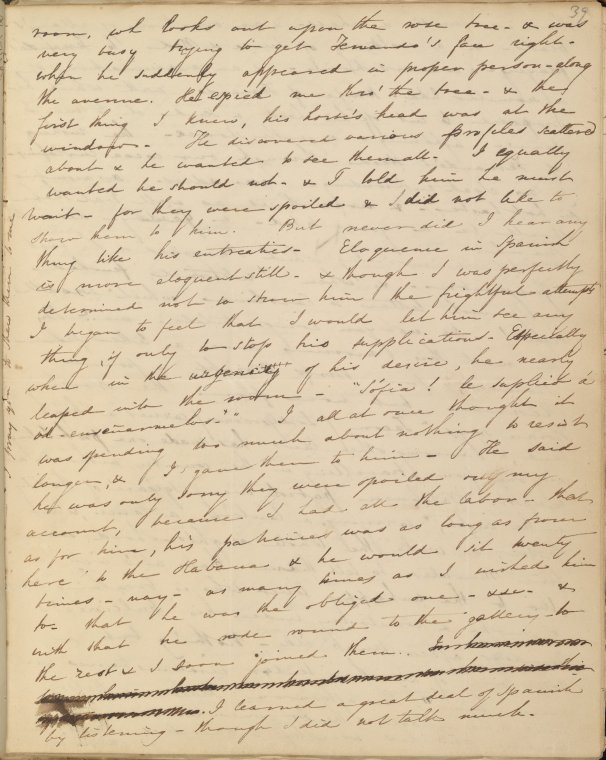 39
room, wh looks out upon the rose tree - & was
very busy trying to get Fernando's face right -
when he suddenly appeared in proper person - along
the avenue. He espied me thro' the tree - & the
first thing I knew, his horse's head was at the
window - He discovered various profiles scattered
about & he wanted to see them all - I equally
wanted he should not - & I told him he must
wait - for they were spoiled & I did not like to
show them to him. But never did I hear any
thing like his entreaties - Eloquence in Spanish
is more eloquent still - & though I was perfectly
determined not to show him the frightful attempts
I began to feel that I would let him see any
thing, if only to stop his supplications - Especially
when in the urgency of his desire, he nearly
leaped into the room - "Sofia! le suplico á
vd enseñarmelos." I all at once thought it
was spending too much about nothing to resist
longer, & I gave them to him - He said
he was only sorry they were spoiled on my
account, because I had all the labor - that
as for him, his patience was as long as from
here to the Habana & he would sit twenty
times - nay - as many times as I wished him
to - that he was the obliged one - &c - &
with that he rode round to the gallery - to
the rest & I soon joined them.
I learned a great deal of Spanish
by listening - though I did not talk much -
I pray you to shew them to me